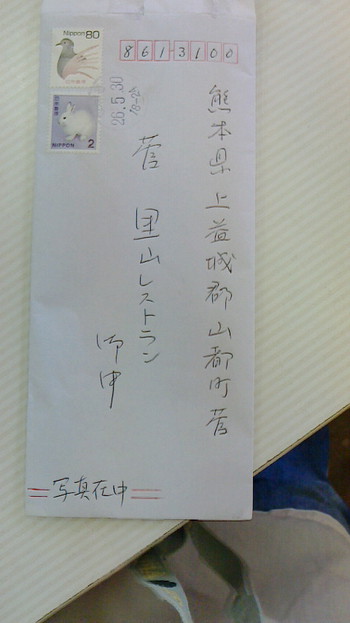 Nippon 80
日本郵便
日本郵便
NIPPON 2
26.5.30
18-24
8613100
熊本県上益城郡山都町菅
菅 里山レストラン
御中
写真在中